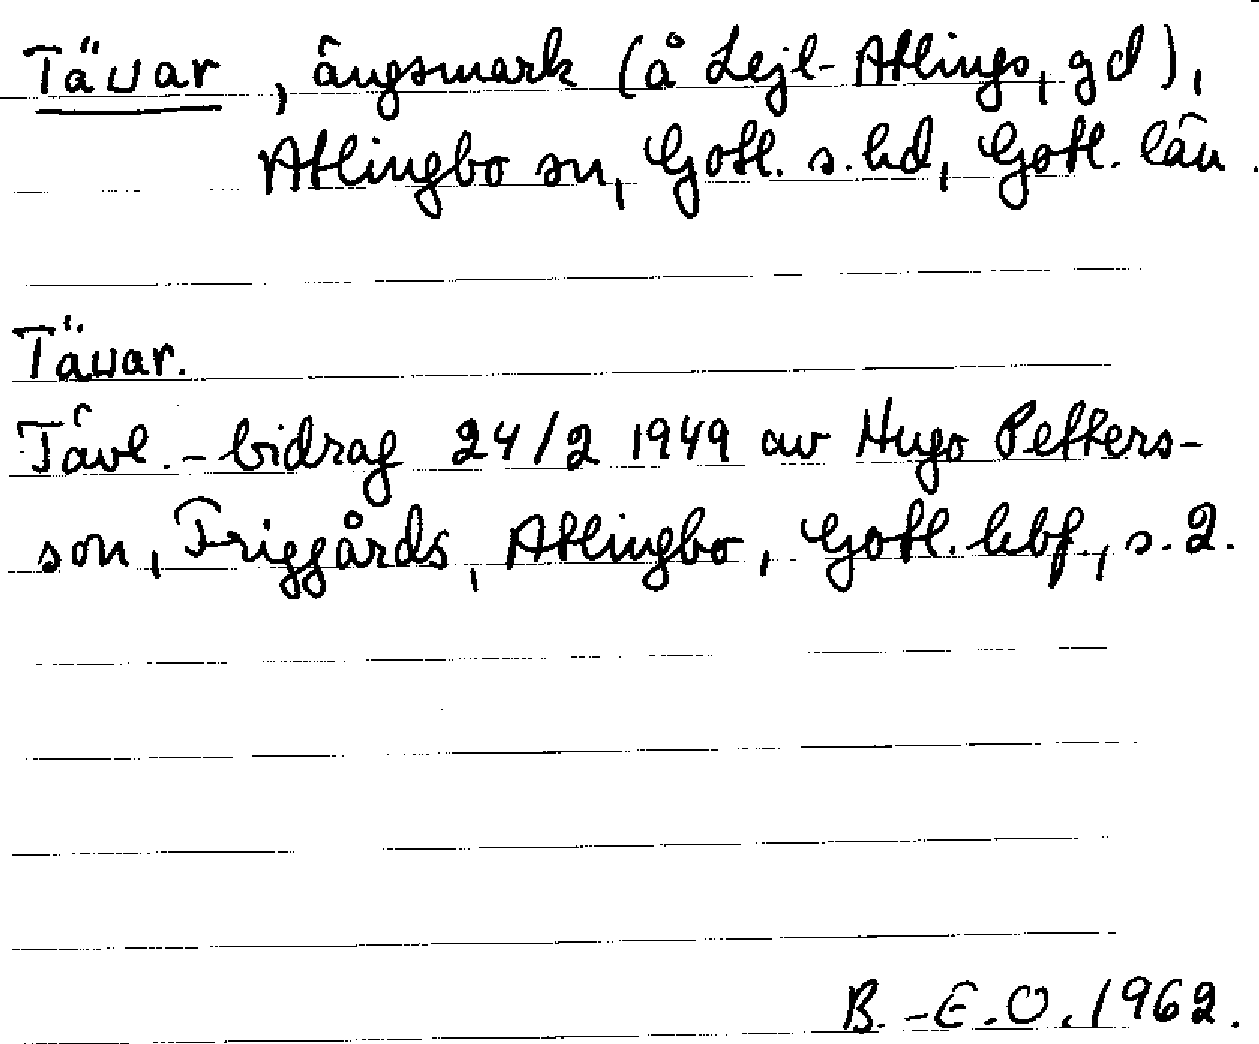 Tävar, ängsmark (å Lejl-Atlings, gd),
Atlingbo sn, Gotl. s. hd, Gotl. län.
Tävar.
Tävl.-bidrag 24/2 1949 av Hugo Petters-
son, Friggårds, Atlingbo, Gotl. hbf., s. 2.
B.-E.O. 1962.